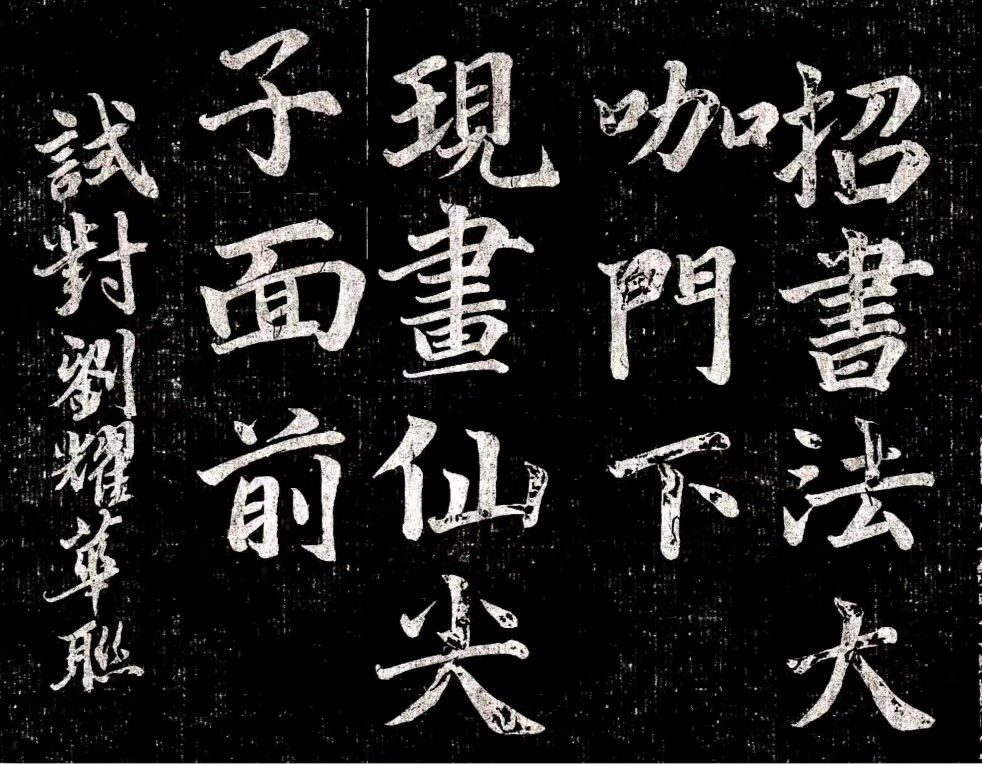 招書法大
咖門下
現畫仙尖
子面前
試對劉耀華聯